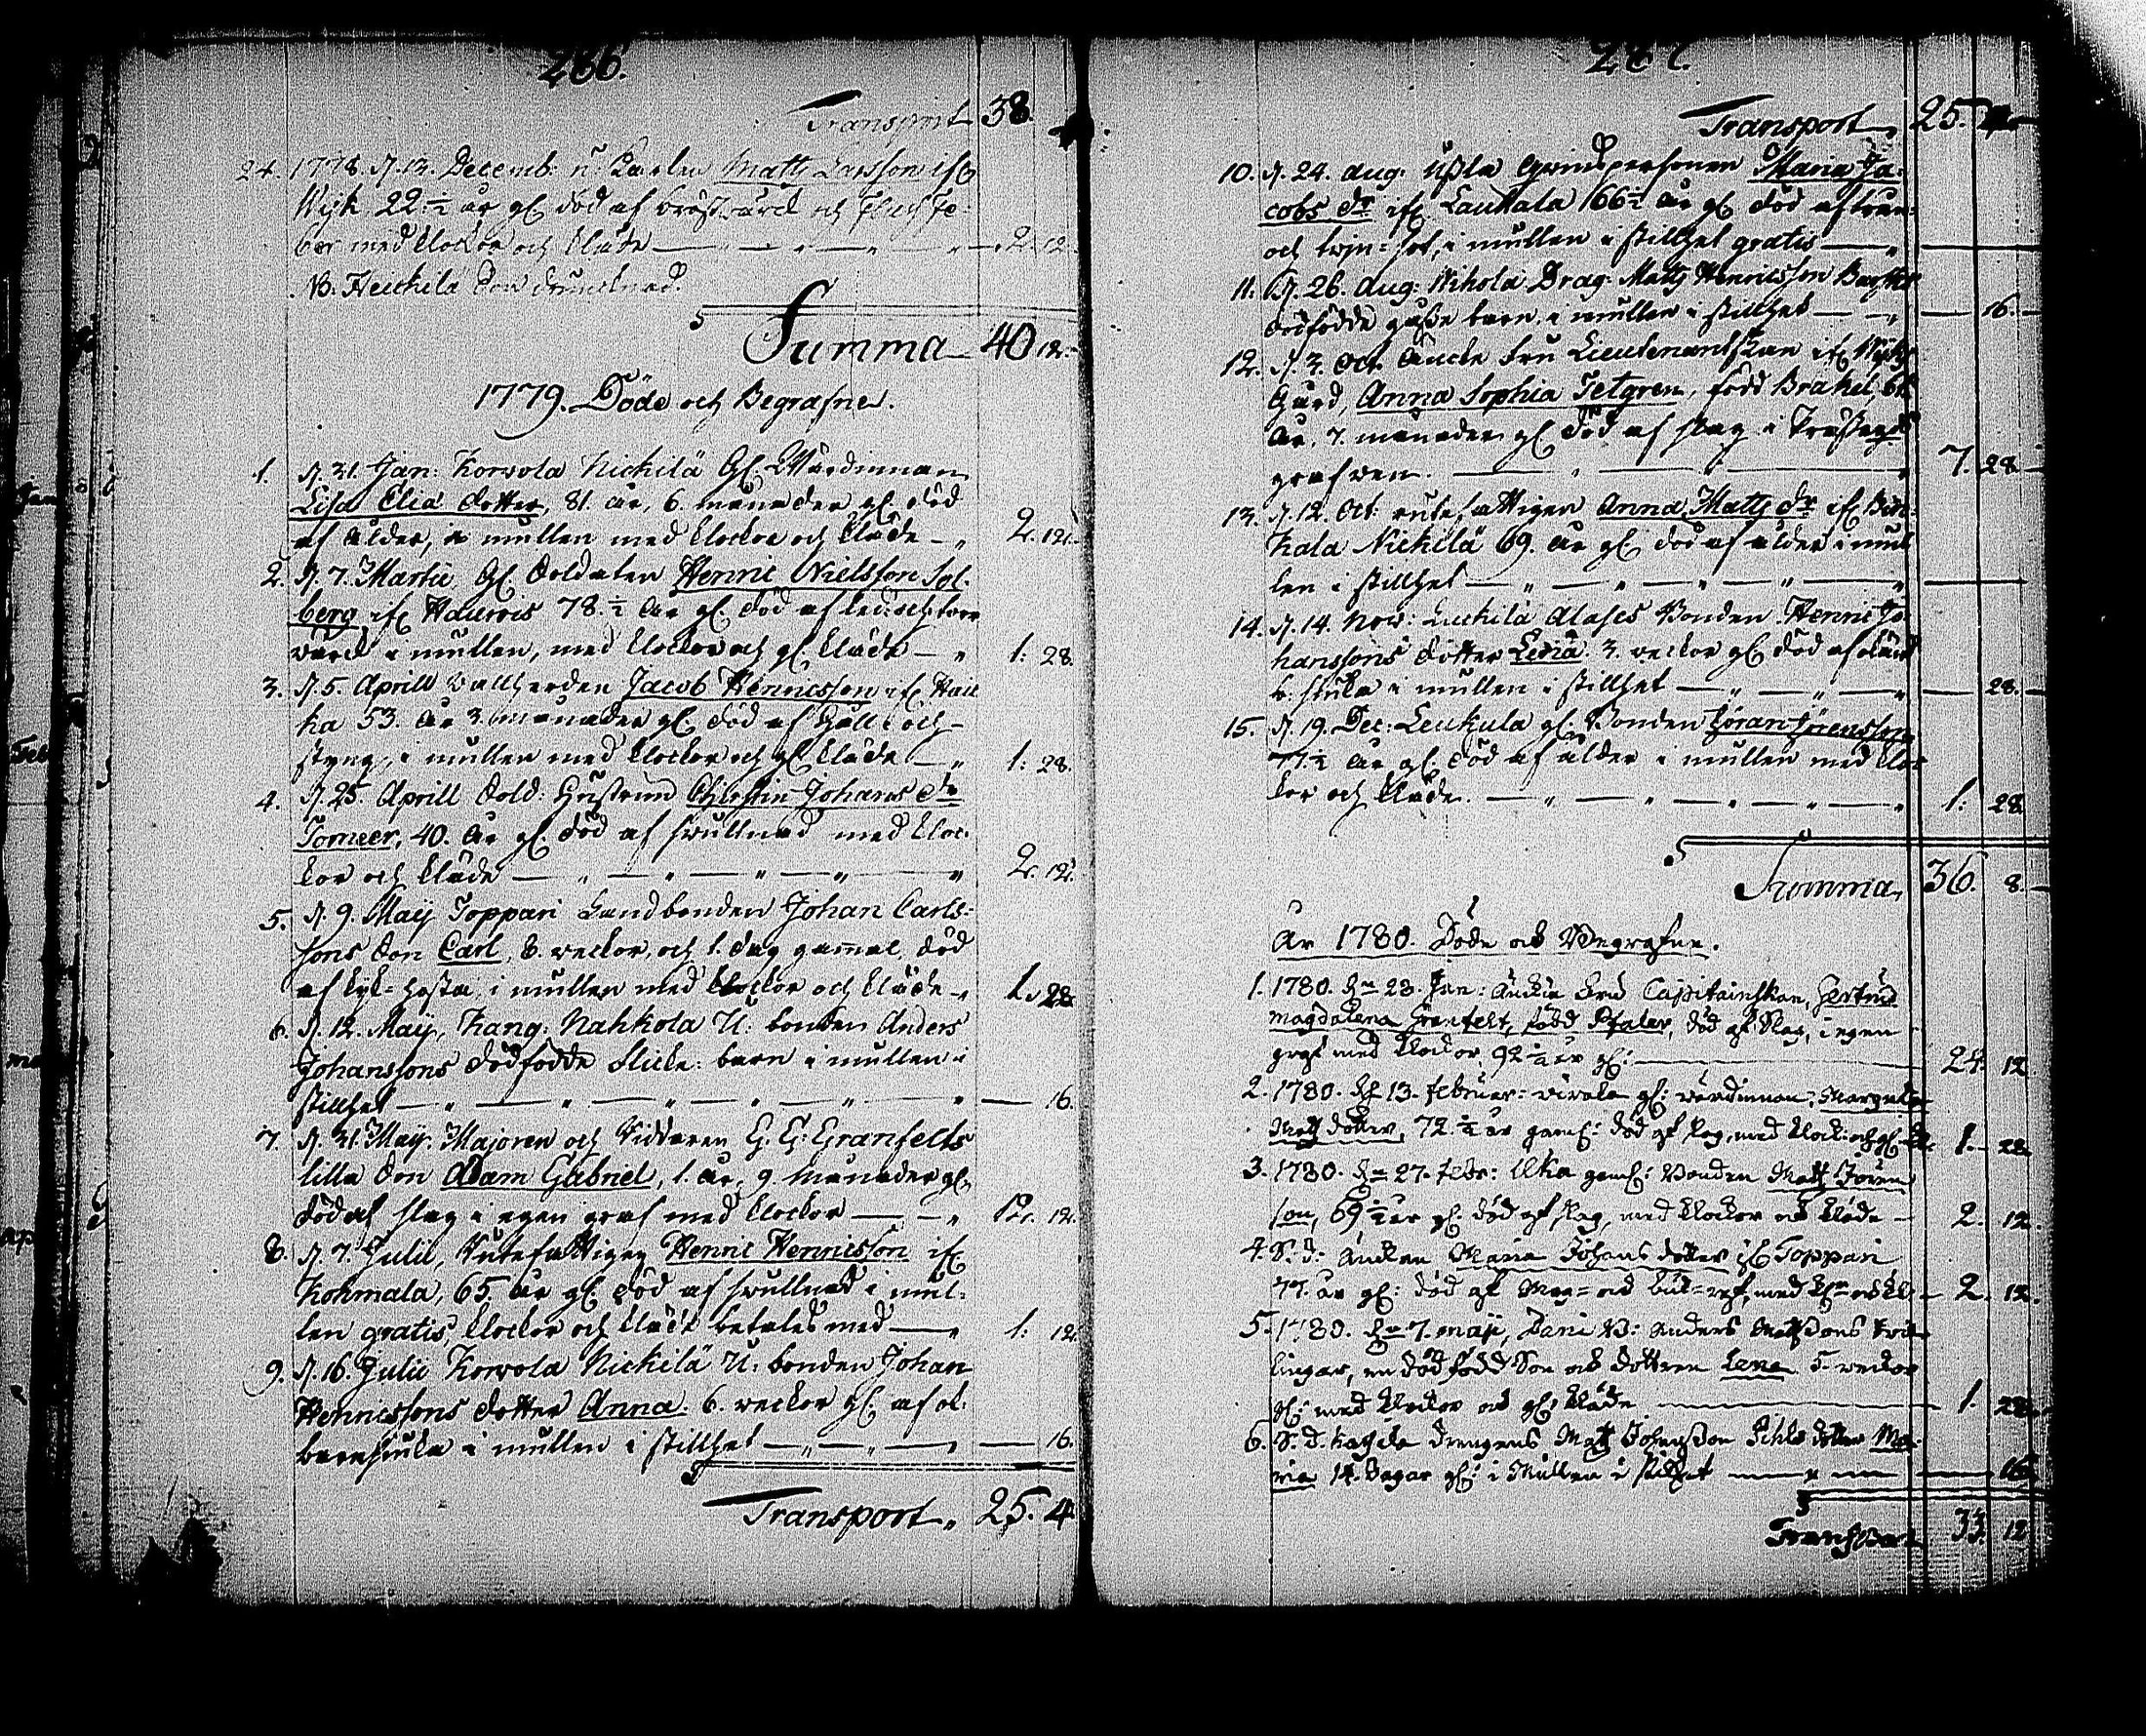 286.
Transport 38.
24. 1778. d. 13. Decemb: u: Karlen Matts Larsson ifr.
Wijk 22 ½ år gl. död af bröstwärck och
med klockor och kläde 2. 12.
NB: Heickilä Son drunknad.
Summa 40 12.
1779. Döde och Begrafne.
1. d. 31. Jan: Korvola Nickilä Gl. Wärdinnan
Lisa Elia dotter, 81. år, 6. månader gl. död
af ålder, i mullen med klockor och kläde 2. 12.
2. d. 7. Martii Gl. Soldaten Henric Nielsson Sol-
berg ifr. Haurois 78. ½ år gl. död af
värck i mullen, med klockor och gl. kläde 1: 28.
3. d. 5. Aprill Vallherden Jacob Henricsson ifr.
ka 53. år 3. månader gl. död af håll och
styng, i mullen med klockor och gl. kläde 1: 28.
4. d. 25. Aprill Sold: Hustrun Christin Johans dr
Torneer, 40. år gl. död af swullnad med kloc-
kor och kläde 2. 12.
5. d. 9. Maij Toppari Landbonden Johan Carls-
sons Son Carl, 8. veckor, och 1. dag gamal, död
af kyk-hosta, i mullen med klockor och kläde 1. 28
6. d. 12. Maij, Kang: Nahkola U: bonden Anders
Johanssons dödfödde flicke-barn i mullen i
stillhet 16.
7. d. 31. Maij. Majoren och Riddaren G. G: Granfelts
lilla Son Adam Gabriel, 1. år, 9. månader gl.
död af slag i egen graf med klockor 12. 12.
8. d. 7. Julii, Rutefattigen Henric Henricsson ifr.
Kohmala, 65. år gl. död af swullnad i mul-
len gratis, klockor och kläde betalas med 1: 12.
9. d. 16. Julii Korvola Nickilä U: bonden Johan
Henricssons dotter Anna. 6. veckor gl. af
barnsjuka i mullen i stillhet 16.
Transport 25. 4.
287.
Transport, 25. 4.
10. d. 24. Aug: Ussla Maria Ja-
cobs dr ifr. Laukkala 66 ½ år gl. död af
och i mullen i stillhet gratis
11. d. 26. Aug: Nihola Drag: Matts Henricsson
dödfödde gosse barn i mullen i stillhet 16.
12. d. 3. Oct. Änckefru Lieutenantskan ifr. Wijks
Gård, Anna Sophia Jetgren, född Brakel,
år, 7. månader gl. död af slag i
grafven 7. 28
13. d. 12. Oct: rutefattigen Anna Matts dr ifr.
kala Nickilä 69. år gl. död af ålder i mul
len i stillhet
14. d. 14. Nov: Luckilä Alases Bonden Henric Jo-
hanssons dotter Lena 3. veckor gl. död af
b. sjuka i mullen i stillhet 28.
15. d. 19. Dec: Leukula gl. Bonden Jöran Jörensson
77. ½ år gl. död af ålder i mullen med kloc
kor och kläde. 1: 28
Summa, 36. 8.
År 1780. Döde och Begrafne.
1. 1780. dn 23. Jan: Änckie Fru Capitainskan, Gertrud
Magdalena Granfelt, född Pfaler, död af Slag, i egen
graf med klockor, 92 ½ år gl: 24. 12
2. 1780. dn 13. Februar: Wirala gl: wärdinnan, Margeta
Matts dotter, 72. ½ år gaml: död af slag, med klock: och gl. kl. 1. 28
3. 1780. dn 27. Febr: Ulka gaml: Bonden Matts Jören
son, 69 ½ år gl. död af slag, med klockor och kläde 2. 12.
4. S. d. Änckan Maria Johans dotter ifr. Toppari
77. år gl: död af Mag- och och kl: 2. 12.
5. 1780. dn 7. Maji, B: Anders Mattssons twil-
lingar, en dödfödd Son och dottren Lena 5. weckor
gl: med klockor och gl. kläde 1. 28
6. S. d. drengens Matts Johansson dotter Ma-
ria 14. dagar gl: i Mullen i stillhet 16
Transport 33. 12